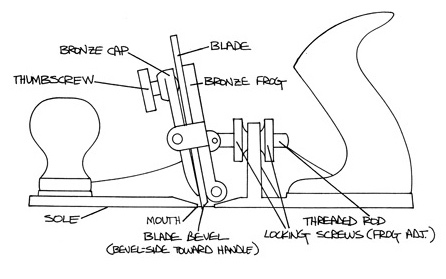 BRONZE CAP
BLADE
THUMBSCREW
BRONZE FROG
SOLE
MOUTH
BLADE BEVEL
(BEVEL-SIDE TOWARD HANDLE)
THREADED ROD
LOCKING SCREWS (FROG ADJ.)